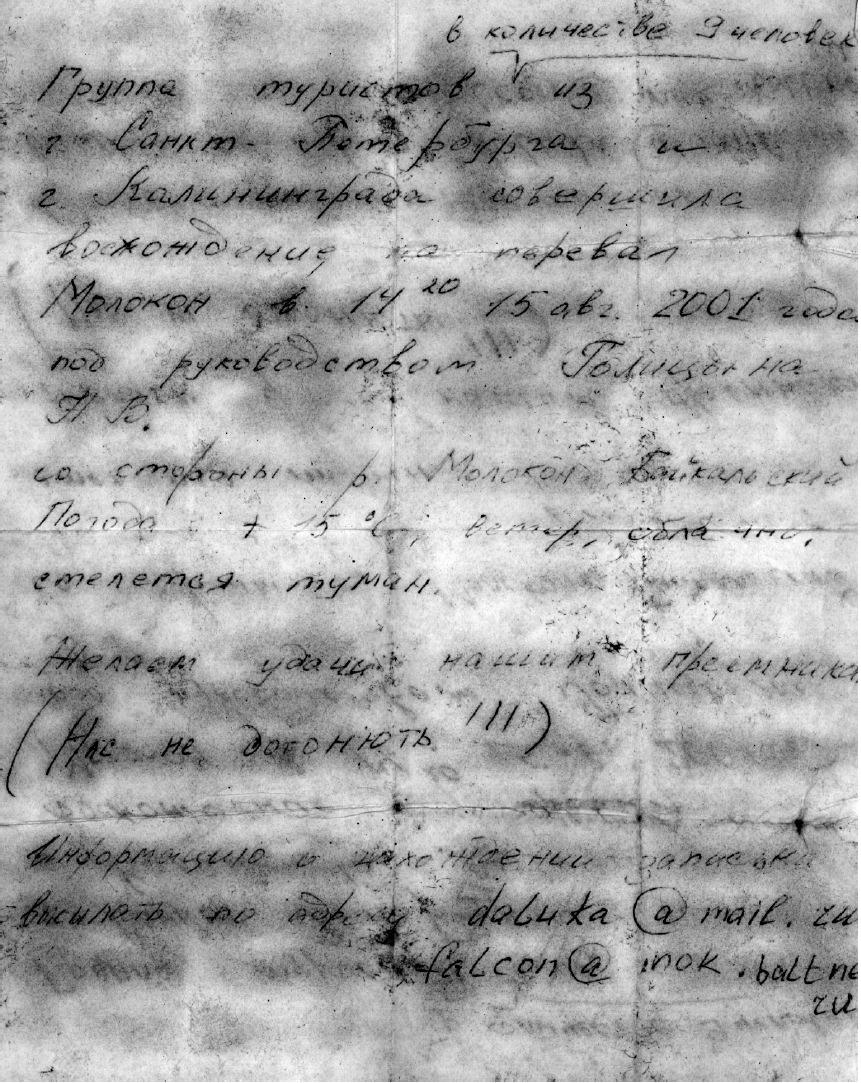 в количестве 9 человек
Группа туристов из
г. Санкт-Петербурга и
г. Калининграда совершила
восхождение на перевал
Молокон в 14 20 15 авг. 2001 года
под руководством Голицына
Н. В.
со стороны р. Молокон Байкальский
Погода: + 15 °C, ветер, облачно,
стелется туман.
Желаем удачи нашим преемникам
(Нас не догонють !!!)
Информацию о нахождении записки
высылать по адресу daluxa@mail.ru
falcon@inok.baltnet
ru